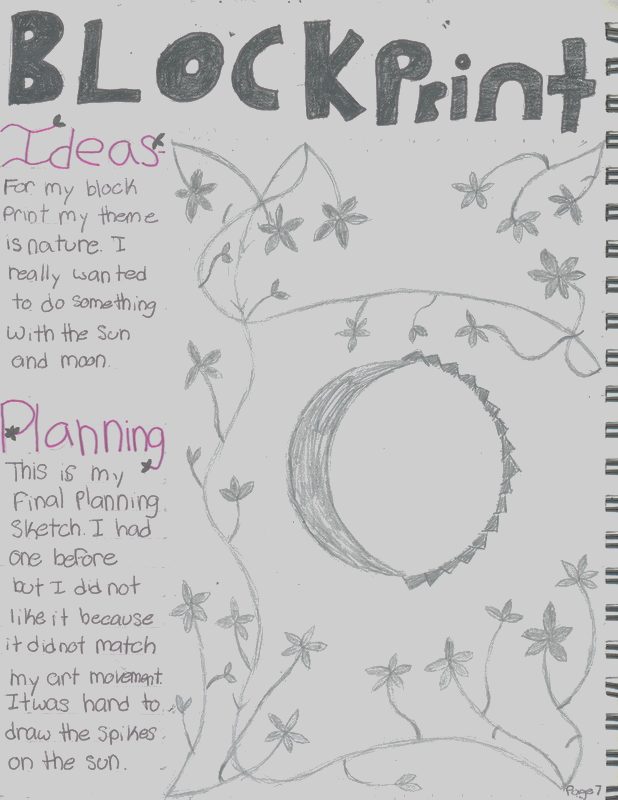 BLOCKPrint
Ideas
For my block
Print my theme
is nature. I
really wanted
to do something
with the Sun
and moon.
Planning
This is my
Final Planning
Sketch. I had
one before
but I did not
like it because
it did not match
my art movement.
It was hard to
draw the spikes
on the sun.
Page 7